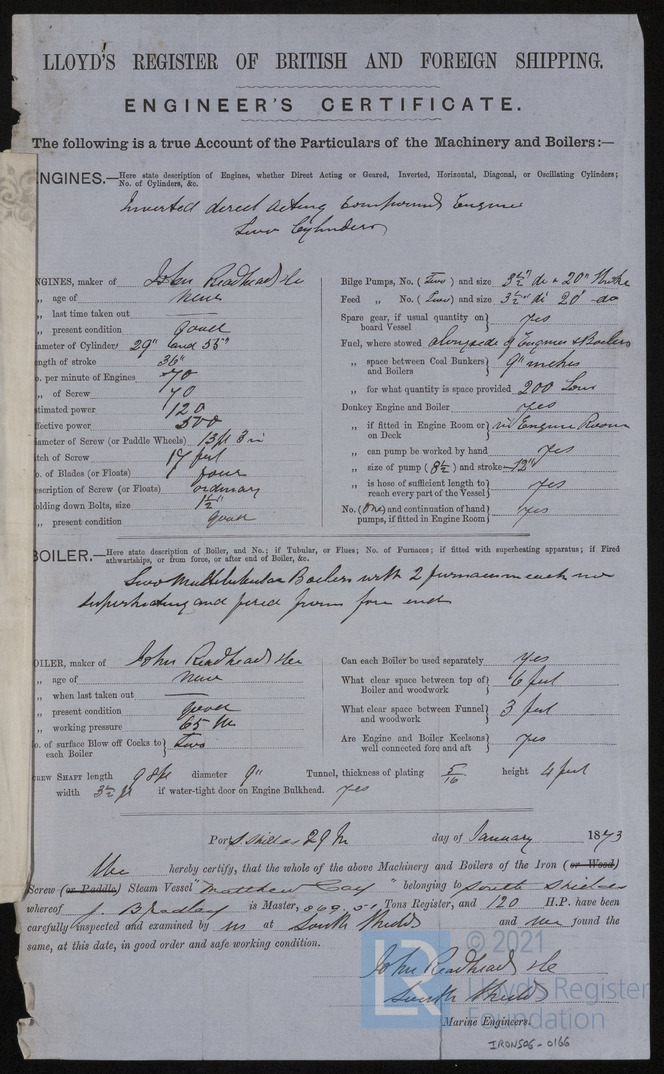 LLOYD'S REGISTER OF BRITISH AND FOREIGN SHIPPING.
ENGINEER'S CERTIFICATE.
The following is a true Account of the Particulars of the Machinery and Boilers:—
NGINES.—Here state description of Engines, whether Direct Acting or Geared, Inverted, Horizontal, Diagonal, or Oscillating Cylinders;
No. of Cylinders, &c.
Inverted direct Acting Compound Engine
Two Cylinders
NGINES, maker of John Readhead & Co
„ age of New
„ last time taken out —
„ present condition good
iameter of Cylinder 29" and 55"
ength of stroke 36"
o. per minute of Engines 70
„ of Screw 70
stimated power 120
ffective power 500
iameter of Screw (or Paddle Wheels) 13ft 3in
itch of Screw 17 feet
o. of Blades (or Floats) four
escription of Screw (or Floats) ordinary
olding down Bolts, size 1½"
„ present condition good
Bilge Pumps, No. (Two) and size 3½" di + 20" Stroke
Feed „ No. (Two) and size 3½" di 20" do
Spare gear, if usual quantity on board Vessel} yes
Fuel, where stowed alongside of Engines & Boilers
„ space between Coal Bunkers and Boilers} 9" inches
„ for what quantity is space provided 200 Tons
Donkey Engine and Boiler yes
„ if fitted in Engine Room or on Deck} in Engine Room
„ can pump be worked by hand yes
„ size of pump (8½) and stroke 12"
„ is hose of sufficient length to reach every part of the Vessel} yes
No. (One) and continuation of hand pumps, if fitted in Engine Room} yes
BOILER.—Here state description of Boiler, and No.; if Tubular, or Flues; No. of Furnaces; if fitted with superheating apparatus; if Fired
athwartships, or from force, or after end of Boiler, &c.
Two Multitubular Boilers with 2 furnaces in each no
superheating and fired from fore end
OILER, maker of John Readhead & Co
„ age of New
„ when last taken out —
„ present condition good
„ working pressure 65
o. of surface Blow off Cocks to each Boiler} Two
Can each Boiler be used separately yes
What clear space between top of Boiler and woodwork} 6 feet
What clear space between Funnel and woodwork} 3 feet
Are Engine and Boiler Keelsons well connected fore and aft} yes
CREW SHAFT length diameter 9" Tunnel, thickness of plating 5/16 height 4 feet
width 3½ ft if water-tight door on Engine Bulkhead. yes
Port S. Shields 29th day of January 1873
We hereby certify, that the whole of the above Machinery and Boilers of the Iron (or Wood)
Screw (or Paddle) Steam Vessel "Matthew Cay" belonging to South Shields
whereof J. Bradley is Master, 869.51 Tons Register, and 120 H.P. have been
carefully inspected and examined by us at South Shields and were found the
same, at this date, in good order and safe working condition.
John Readhead & Co
South Shields
Marine Engineers.
IRONS06-0166
LR
© 2021
Lloyd's Register
Foundation